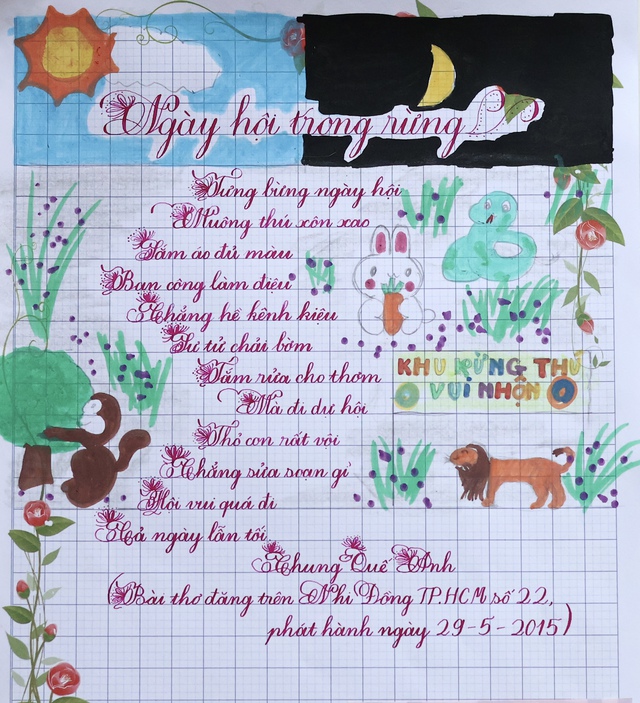 Ngày hội trong rừng
Tưng bừng ngày hội
Muông thú xôn xao
Sắm áo đủ màu
Ban công làm điệu
Chẳng hề kênh kiệu
Sư tử chải bờm
Tắm rửa cho thơm
Mà đi dự hội
Thỏ con rất vội
Chẳng sửa soạn gì
Hội vui quá đi
Cả ngày lẫn tối
Chung Quế Anh
(Bài thơ đăng trên Nhi Đồng TP.HCM số 22,
phát hành ngày 29-5-2015)
KHU RỪNG THÚ
VUI NHỘN